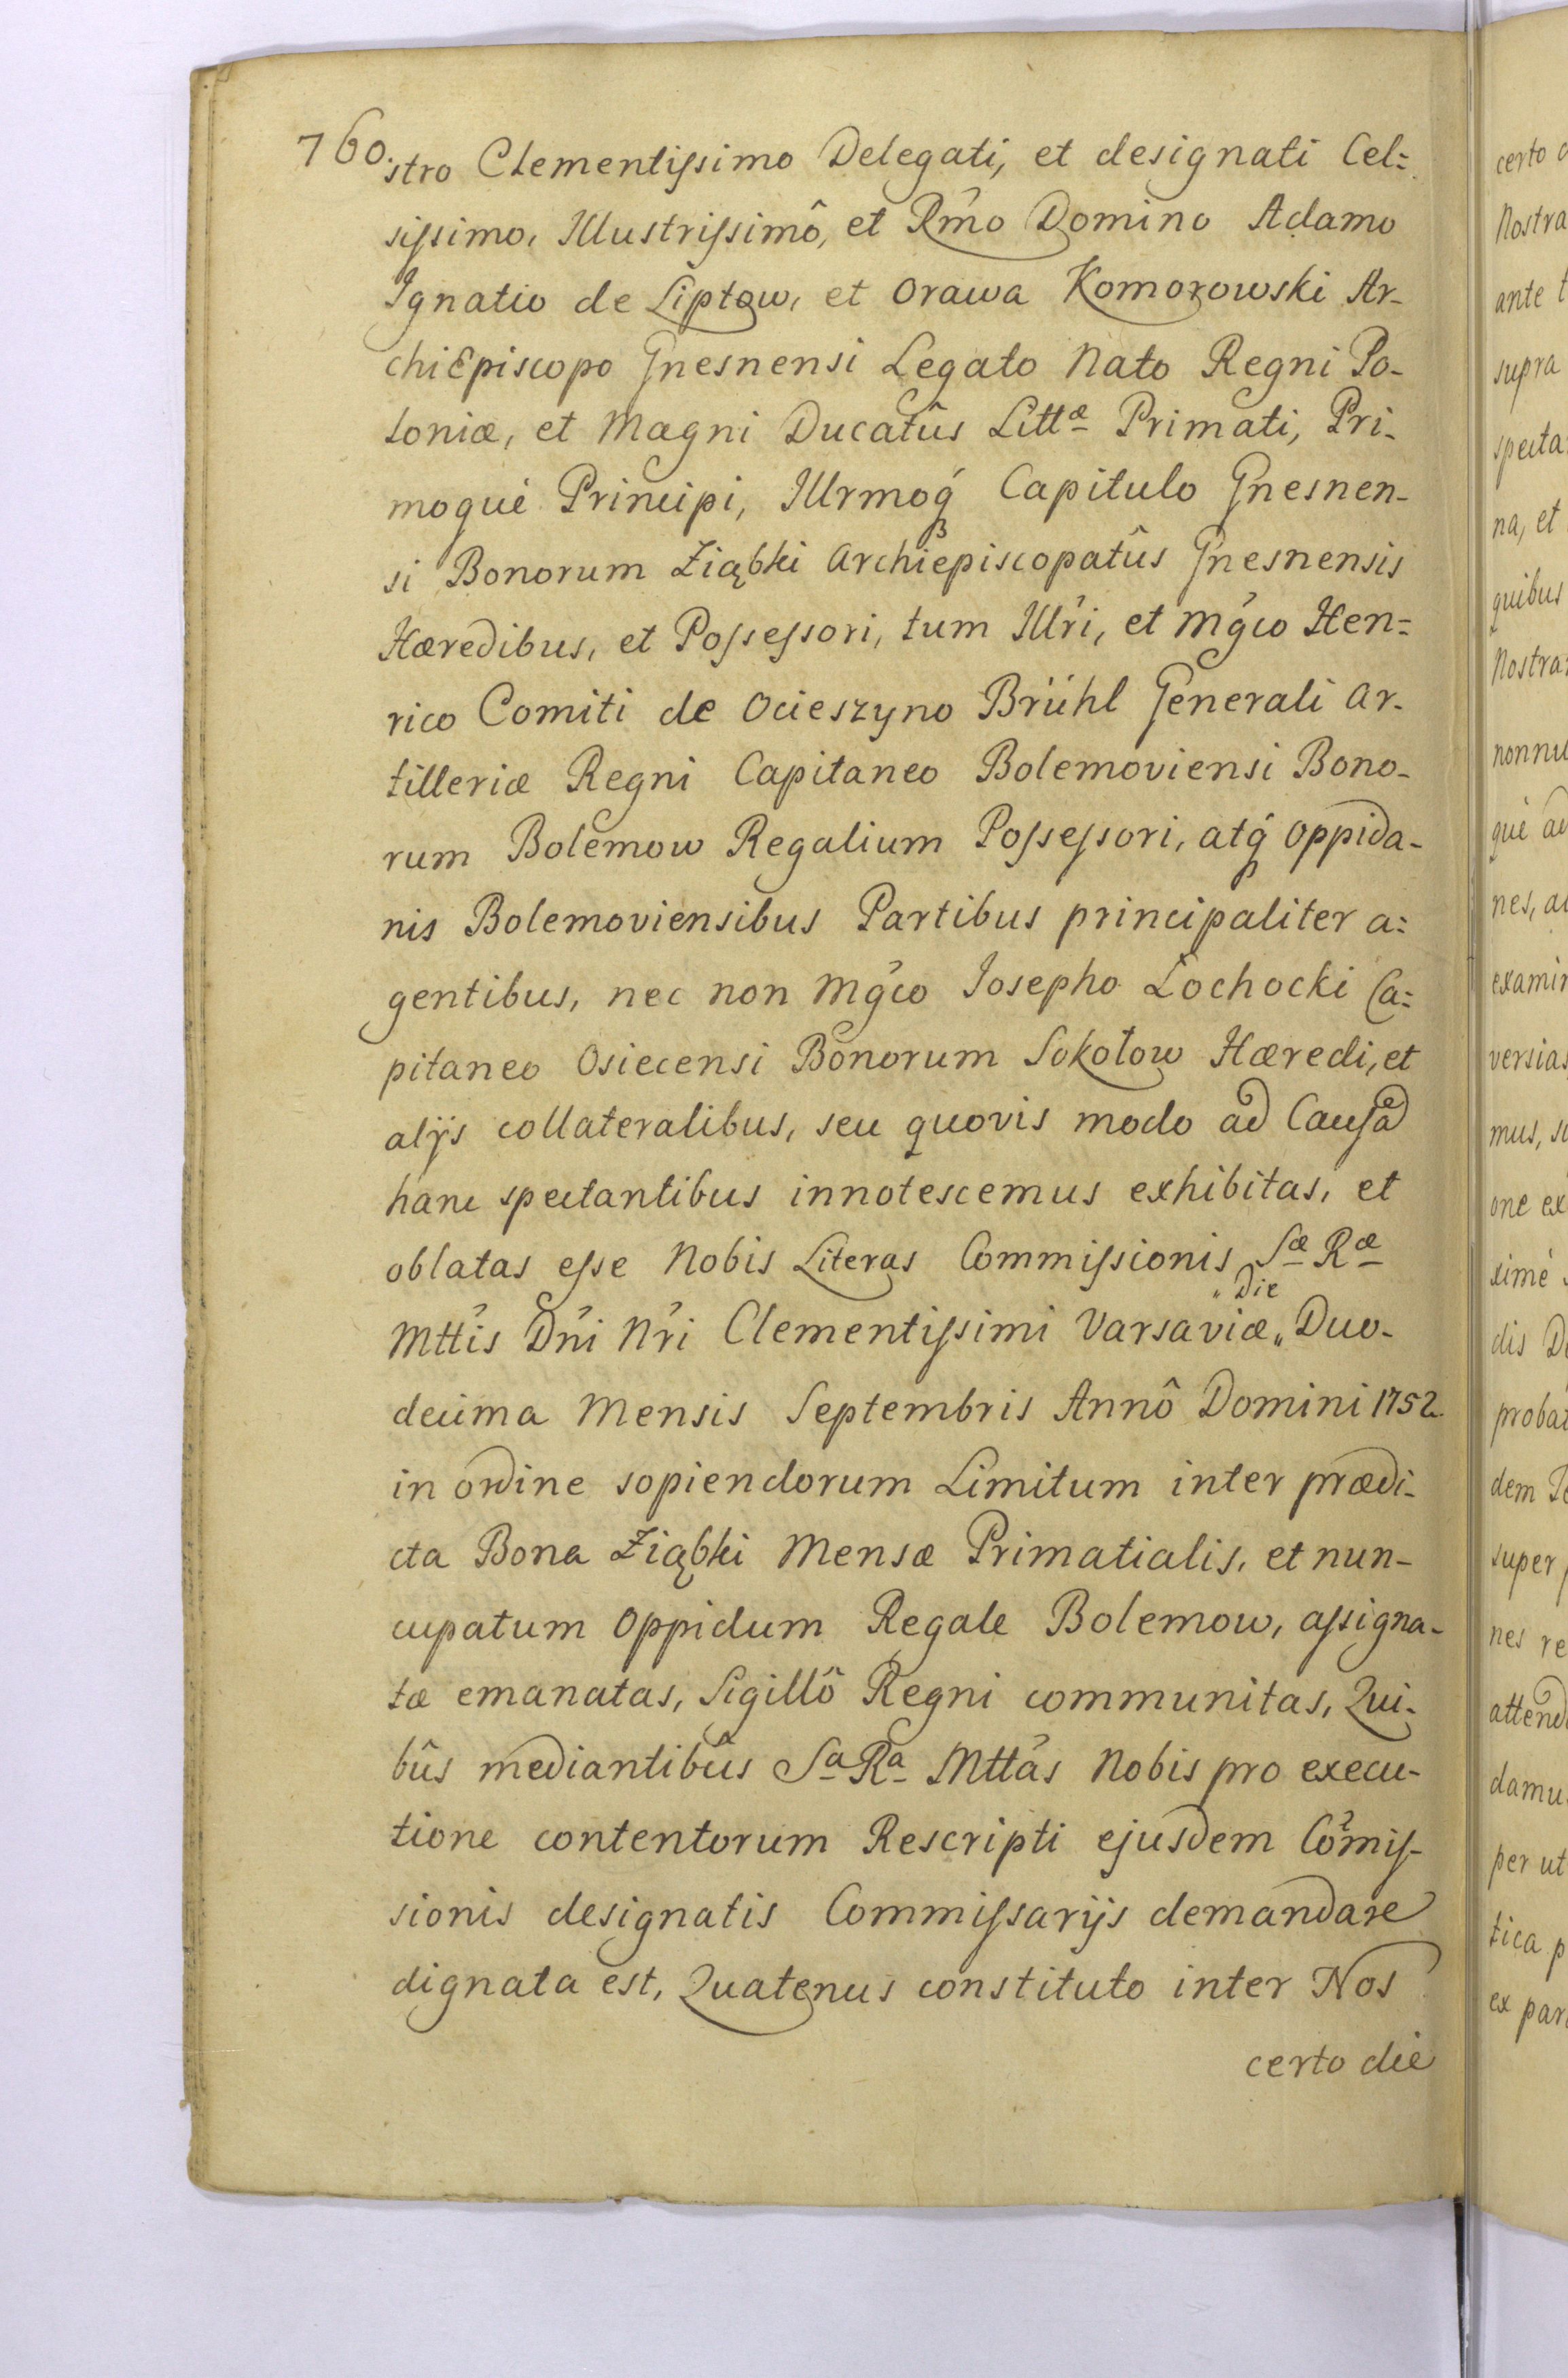 760. stro Clementissimo Delegati, et designati Cel=
sissimo, Illustrissimô, et Rmo Domino Adamo
Ignatio de Liptow, et Orawa Komorowski Ar-
chiEpiscopo Gnesnensi Legato Nato Regni Po-
loniæ, et Magni Ducatûs Littæ Primati, Pri-
moquè Principi, Illrmoq́ Capitulo Gnesnen-
si Bonorum Ziąbki Archiepiscopatûs Gnesnensis
Hæredibus, et Possessori, tum Illri, et Mgco Hen=
rico Comiti de Ocieszyno Brühl Generali Ar-
tilleriæ Regni Capitaneo Bolemoviensi Bono-
rum Bolemow Regalium Possessori, atq́ Oppida-
nis Bolemoviensibus Partibus principaliter a=
gentibus, nec non Mgco Iosepho Lochocki Ca=
pitaneo Osiecensi Bonorum Sokołow Hæredi, et
alÿs collateralibus, seu quovis modo ad Causã
hanc spectantibus innotescemus exhibitas, et
oblatas esse Nobis Literas Commissionis Sæ Ræ
Mttis Dni Nri Clementissimi Varsaviæ „ Die „ Duo-
decima Mensis Septembris Annô Domini 1752
in ordine sopiendorum Limitum inter prædi-
cta Bona Ziąbki Mensæ Primatialis, et nun-
cupatum Oppidum Regale Bolemow, assigna-
tæ emanatas, Sigillô Regni communitas, Qui-
bûs mediantibûs Sa Ra Mttas Nobis pro execu-
tione contentorum Rescripti ejusdem Comis-
sionis designatis Commissarÿs demandare
dignata est, Quatenus constituto inter Nos
certo die
certo
Nostra
ante
supra
specta
na, et
quibus
Nostra
nonnu
què
nes,
exami
versias
mus,
one
ximè
dis
proba
dem
super
nes re
attend
damu
per ut
tica
ex par